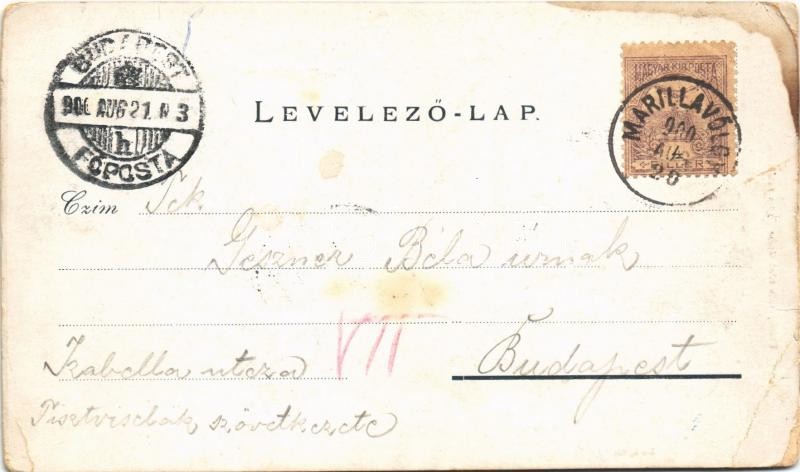 BUDAPEST
900 AUG 21. N 3
h
FŐPOSTA
LEVELEZŐ-LAP.
MAGYAR KIR. POSTA
MARILLAVÖLGY
900
AUG
20
Czim Tek.
Geszner Béla úrnak
VII
Izabella utcza Budapest
Tisztviselök szövetkezete